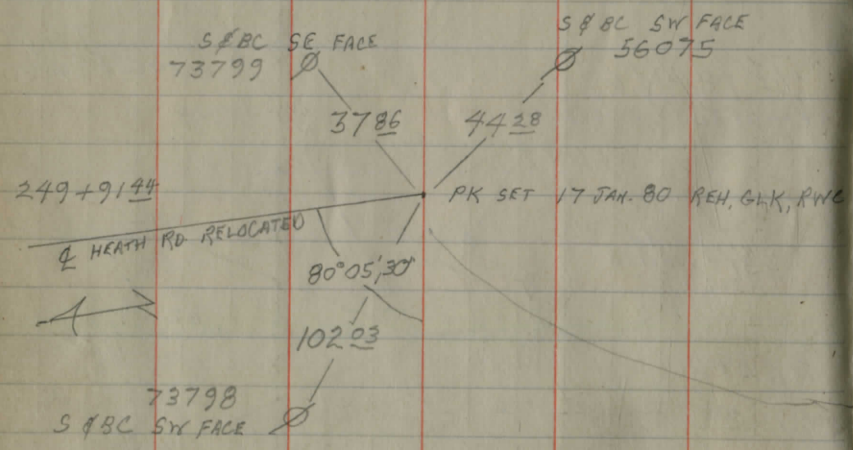 S & BC SW FACE
56075
S & BC SE FACE
73799
37 86
44 28
249+91 44
PK SET 17 JAN. 80 REH, GLK, RWC
℄ HEATH RD RELOCATED
80°05'30"
102 03
73798
S & BC SW FACE